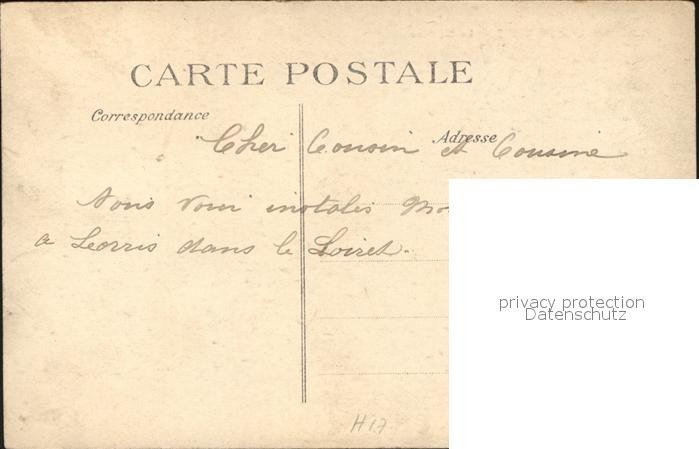 CARTE POSTALE
Correspondance
Adresse
Cher Cousin et Cousine
Nous voici instales
a Lorris dans le Loiret.
privacy protection
Datenschutz
H17